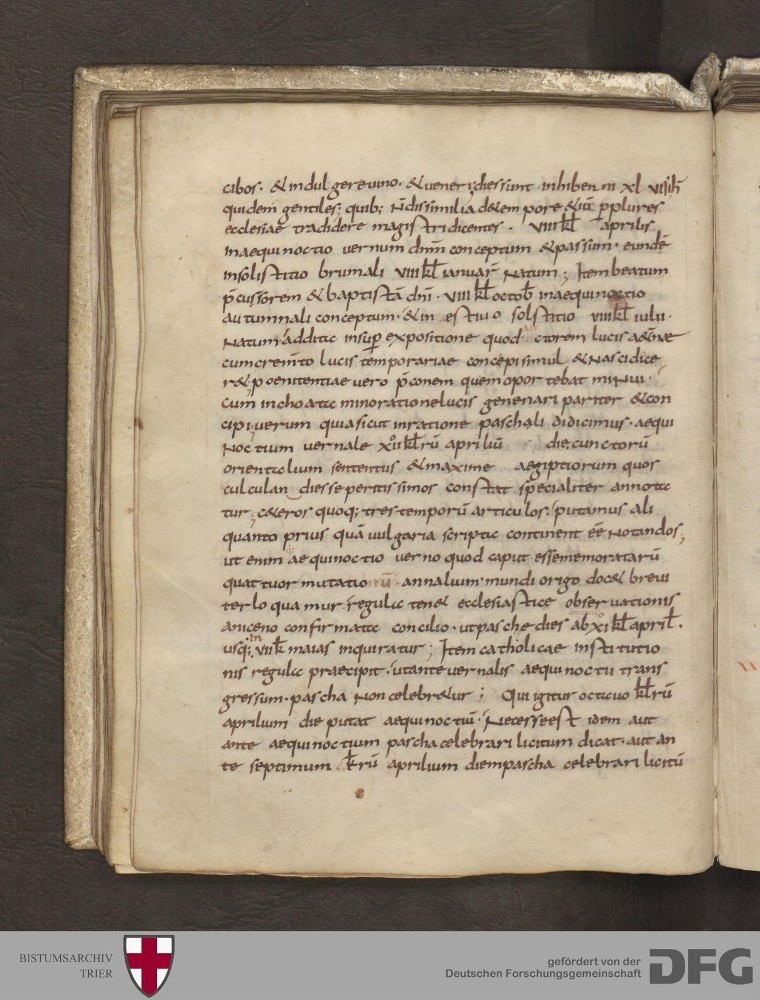 cibos· & indulgere uino· & ueneri; dies sunt inhiberni xl viiii h
quidem gentiles; quib; ñ dissimilia de tempore & iã p̱plures
ecclesiae tradidere magistri dicentes· viii kł aprilis
in aequinoctio uernum dnm̄ conceptum & passum· eundē
in solistitio brumali viii kł ianuar̄ natum; Item beatum
p̄cussorem & baptistā dnī· viii kł octob̄ in aequinoctio
autumnali conceptum· & in aestiuo solstitio viii kł iulii·
Natum· addita insup̱ expositione quod ctorem lucis aet̄nae
cum crem̄to lucis temporariae concepi simul & nasci dice
r& poenitentiae uero p̄conem quem oportebat minui·
cum inchoata minoratione lucis generari pariter & con
cipi; uerum quia sicut in ratione paschali didicimus· aequi
noctium uernale xii kłrū apriliū die cunctorū
orientalium sententiis & maxime aegiptiorum quos
culculandi esse peritissimos constat specialiter annota
tur; c&eros quoq; tres temporū articulos; putamus ali
quanto prius quā uulgaria scripta continent eē notandos;
ut enim aequinoctio uerno quod caput esse memoratarū
quattuor mutationū annalium mundi origo doc& breui
ter loquamur regula ten& ecclesiastice obseruationis
a niceno confirmata concilio· ut pasche dies ab xi kł april̄·
usq; in vii k̄ maias inquiratur; Item catholicae institutio
nis regula praecipit· ut ante uernalis aequinoctii trans
gressum· pascha non celebr&ur; Qui igitur octauo kłrū
aprilium die putat aequinoctiū· Necesse est idem aut
ante aequinoctium pascha celebrari licitum dicat· aut an
te septimum k̄rū aprilium diem pascha celebrari licitū
BISTUMSARCHIV
TRIER
gefördert von der
Deutschen Forschungsgemeinschaft
DFG